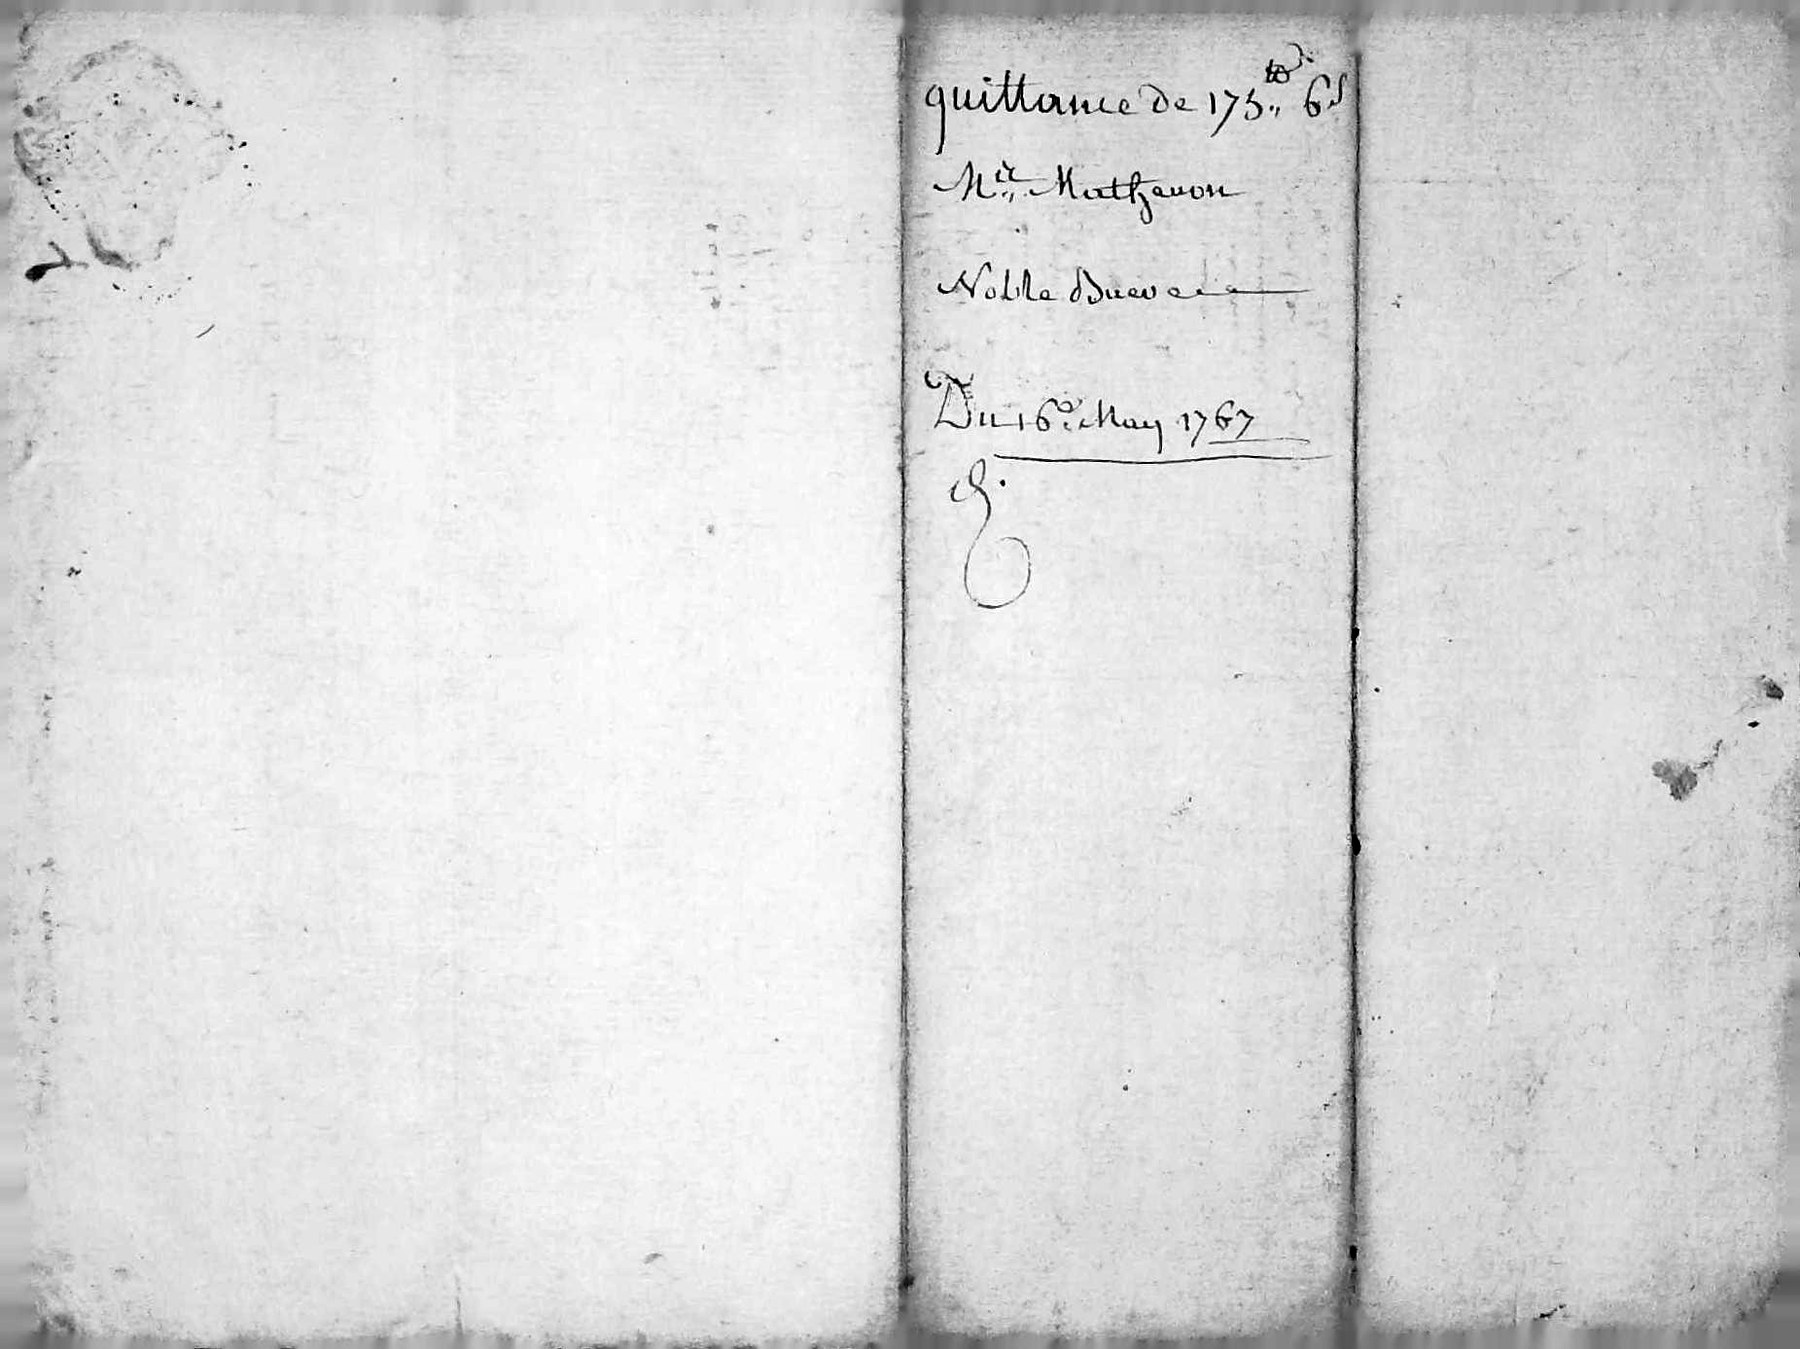 quittance de 175.₶ 6.s
M.re Mathevon
Noble Bueve
Du 16.e May 1767